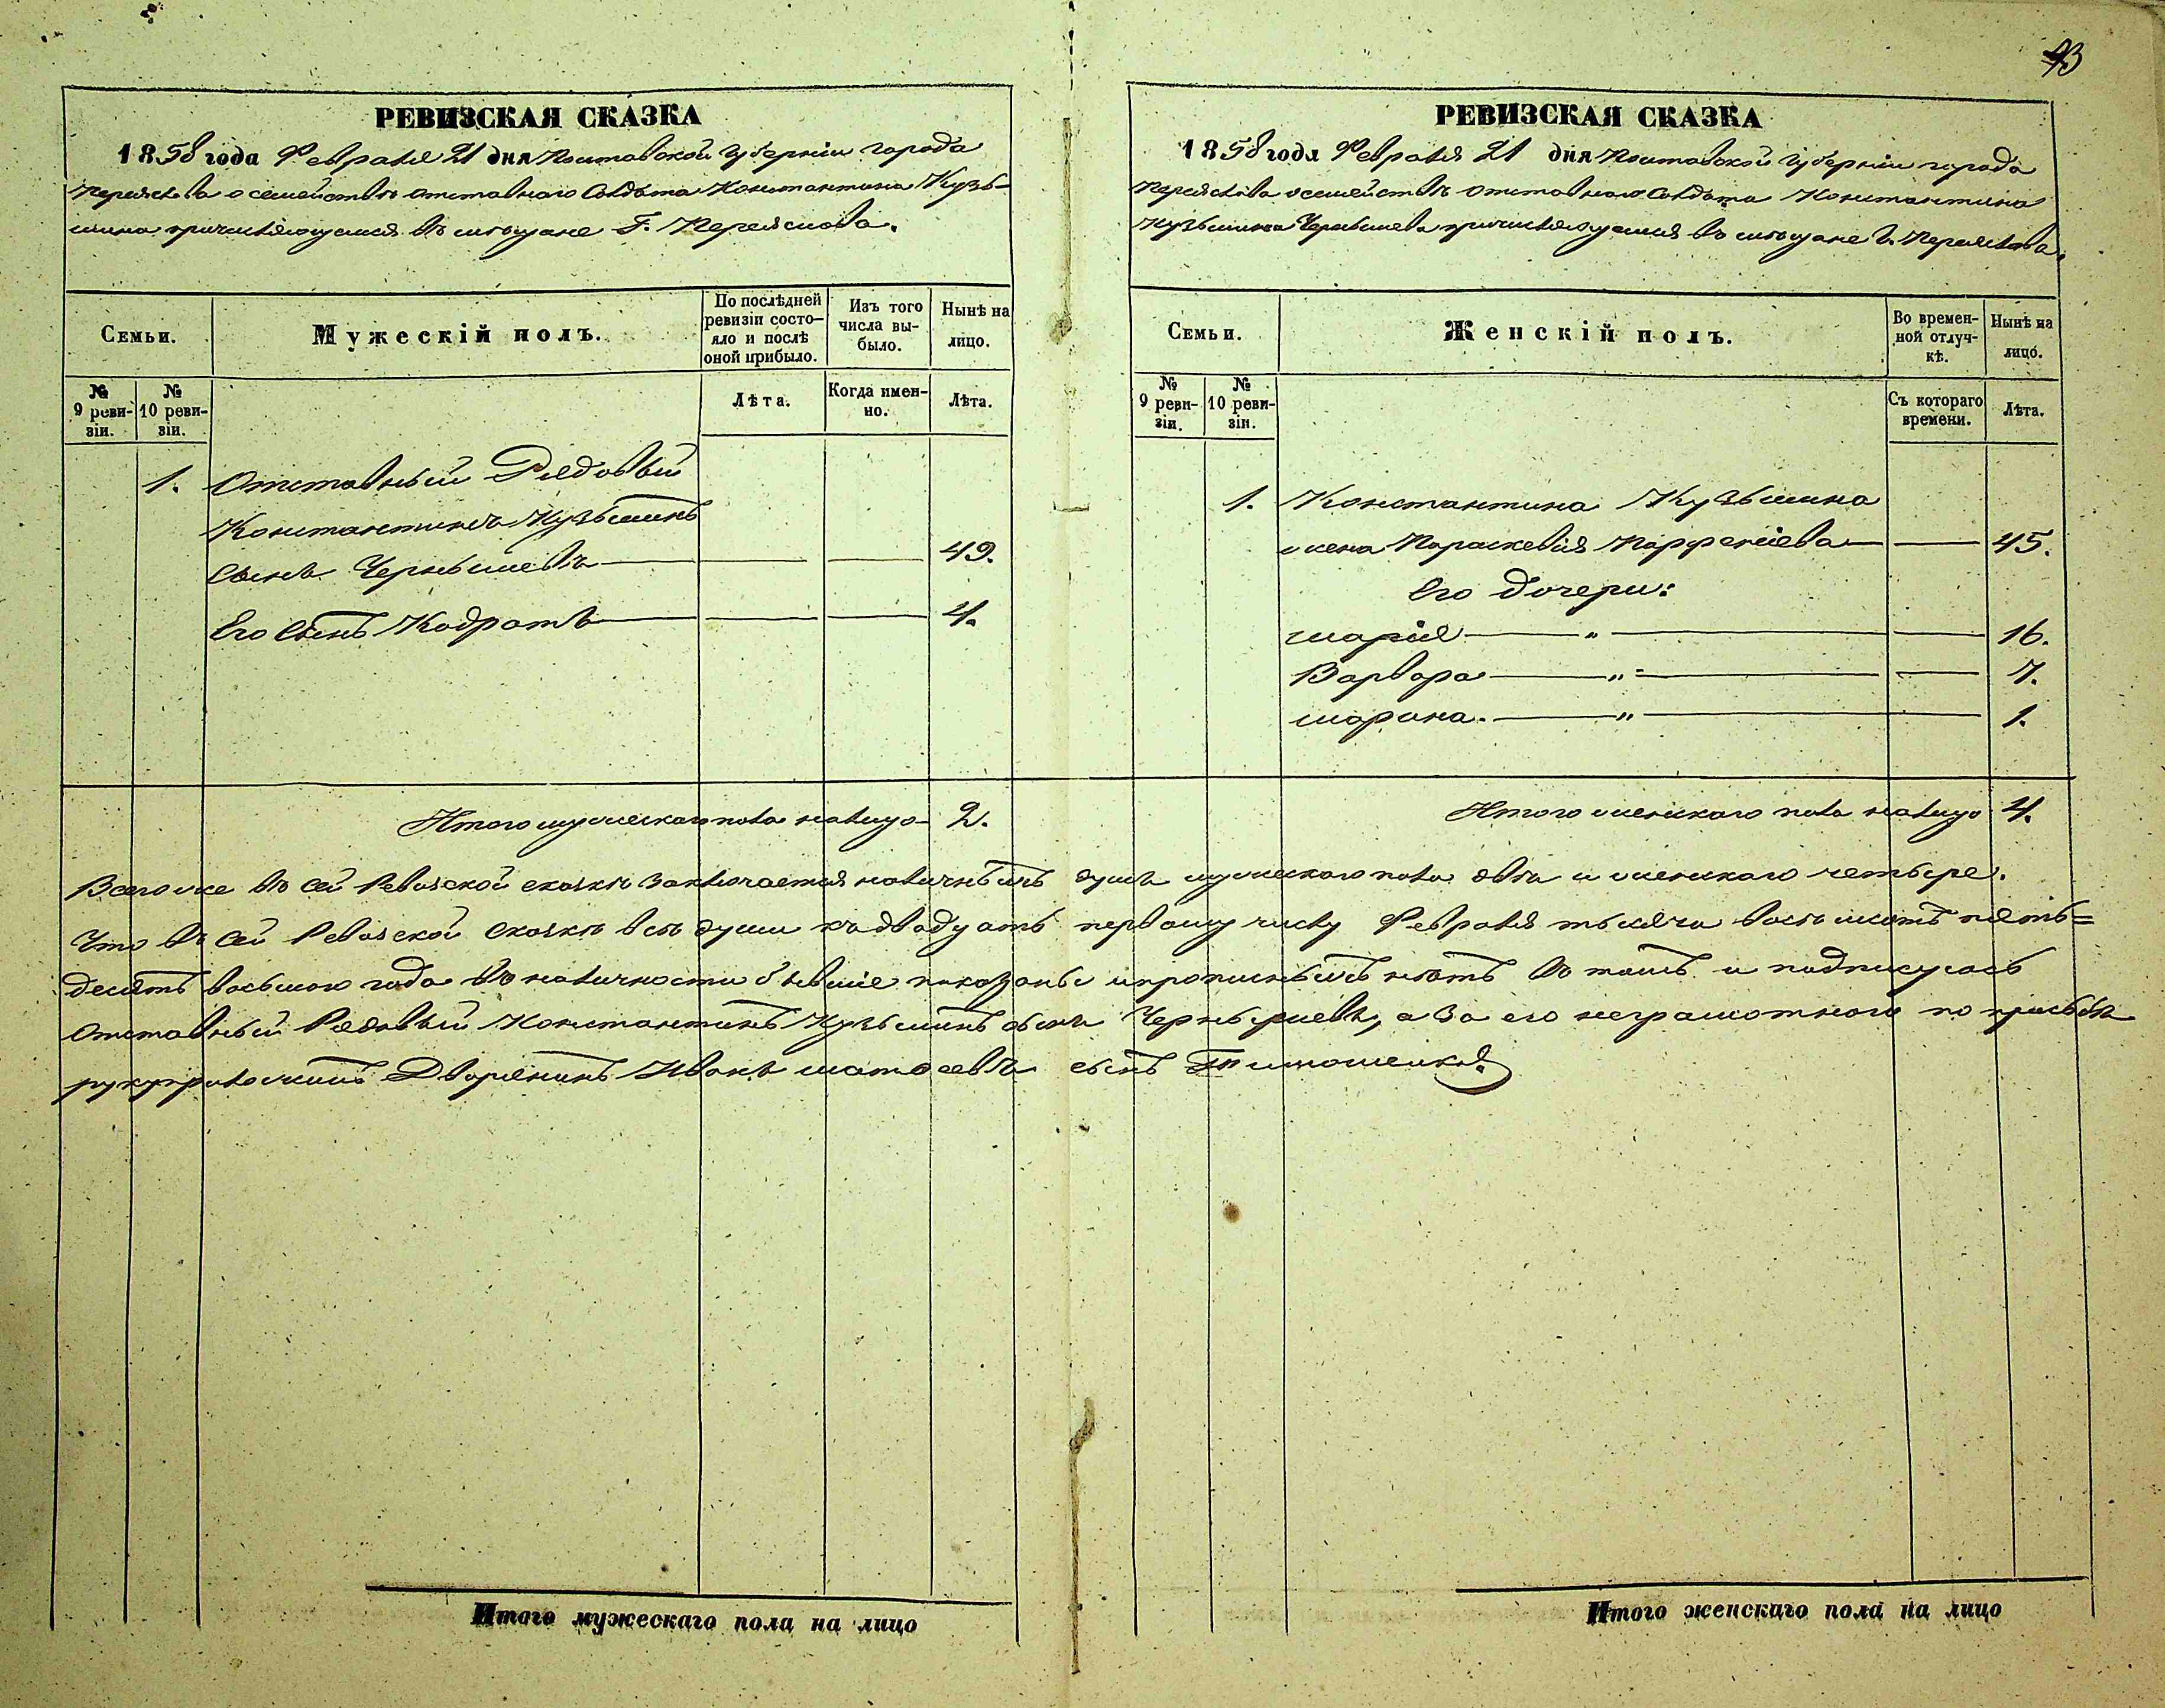 43
РЕВИЗСКАЯ СКАЗКА
1858 года Февраля 21 дня Полтавской Губерніи города
Переяслова о семействѣ отставнаго Солдата Константина Кузь-
мина причисляющемся въ мѣщане Г. Переяслова.
Семьи.
Мужескій полъ.
По послѣдней ревизіи состо-яло и послѣ оной прибыло.
Изъ того числа вы-было.
Нынѣ на лицо.
№ 9 реви-зіи.
№ 10 реви-зіи.
Лѣта.
Когда имен-но.
Лѣта.
1. Отставный Рядовый
Константинъ Кузьминъ
сынъ Чернышевъ 49.
Его сынъ Кодратъ 4.
Итого мужескаго пола налицо 2.
РЕВИЗСКАЯ СКАЗКА
1858 года Февраля 21 дня Полтавской Губерніи города
Переяслова о семействѣ отставнаго Солдата Константина
Кузьмина Чернышева причисляющемся въ мѣщане Г. Переяслова.
Семьи.
Женскій полъ.
Во времен-ной отлуч-кѣ.
Нынѣ на лицо.
№ 9 реви-зіи.
№ 10 реви-зіи.
Съ котораго времени.
Лѣта.
1. Константина Кузьмина
жена Параскевія Парфеніева 45.
Его дочери:
Марія " 16.
Варвара " 7.
Марина. " 1.
Итого женскаго пола налицо 4.
Всего же въ сей Ревизской сказкѣ заключается наличныхъ душъ мужескаго пола двѣ и женскаго четыре.
Что въ сей Ревизской сказкѣ всѣ души къ двадцать первому числу Февраля тысяча восемьсотъ пять=
десятъ восьмого года въ наличности бывшіе показаны и прописныхъ нѣтъ въ томъ и подписуюсь
Отставный Рядовый Константинъ Кузьминъ сынъ Чернышевъ, а за его неграмотного по просьбѣ
рукоприложилъ Дворянинъ Иванъ Матвеевъ сынъ Тимошенко.
Итого мужескаго пола на лицо
Итого женскаго пола на лицо